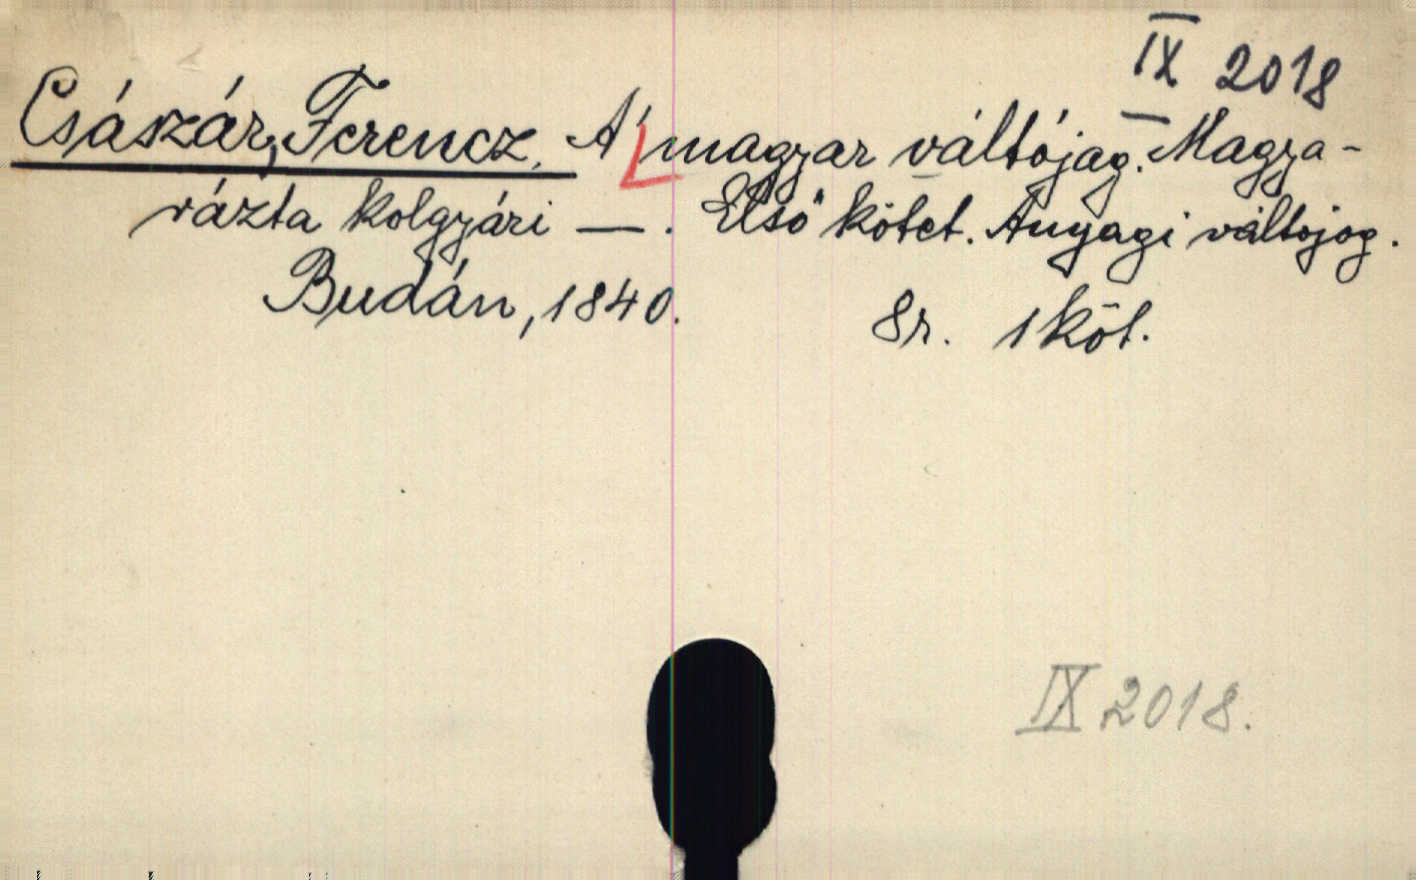 IX 2018
Császár, Ferencz. A' magyar váltójog. Magya-
rázta kolgyári —. Első kötet. Anyagi váltojog.
Budán, 1840. 8r. 1 köt.
IX 2018.